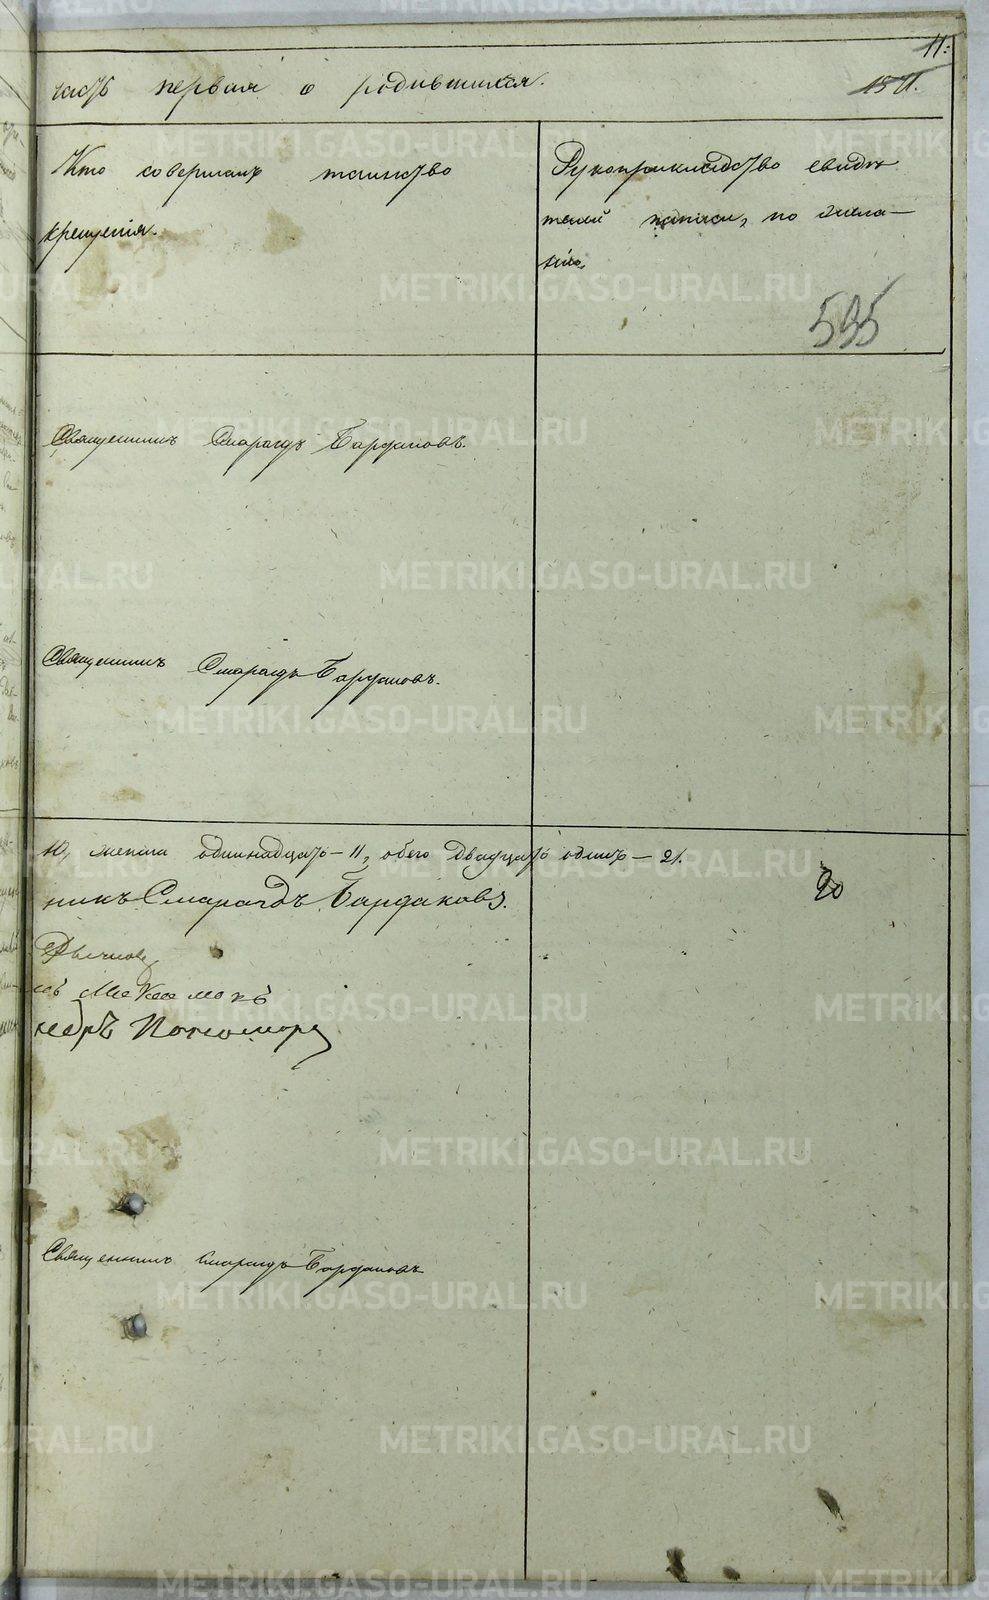 11.
часть первая о родившихся.
Кто совершалъ таинство
крещенія.
Рукоприкладство свидѣ
телей записи, по жела—
нію.
595
Священникъ Смарагдъ Бардаковъ.
Священникъ Смарагдъ Бардаковъ.
10, женска одиннадцать—11, обего двадцать одинъ—21.
никъ Смарагдъ Бардаковъ.
20
Пономарь
Священникъ Смарагдъ Бардаковъ
METRIKI.GASO-URAL.RU